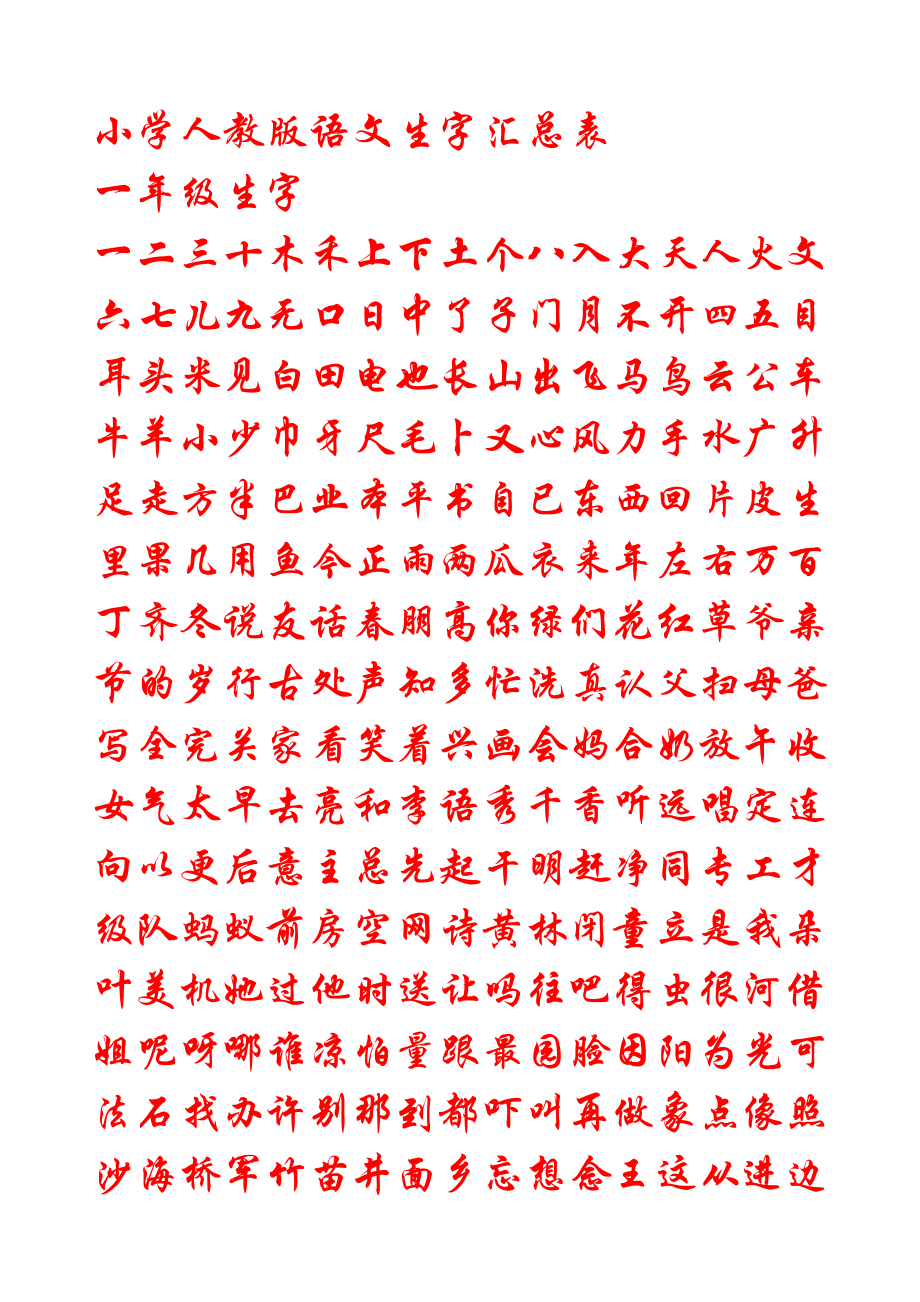 小学人教版语文生字汇总表
一年级生字
一二三十木禾上下土个八入大天人火文
六七儿九无口日中了子门月不开四五目
耳头米见白田电也长山出飞马鸟云公车
牛羊小少巾牙尺毛卜又心风力手水广升
足走方半巴业本平书自已东西回片皮生
里果几用鱼今正雨两瓜衣来年左右万百
丁齐冬说友话春朋高你绿们花红草爷亲
节的岁行古处声知多忙洗真认父扫母爸
写全完关家看笑着兴画会妈合奶放午收
女气太早去亮和李语秀千香听远唱定连
向以更后意主总先起干明赶净同专工才
级队蚂蚁前房空网诗黄林闭童立是我朵
叶美机她过他时送让吗往吧得虫很河借
姐呢呀哪谁凉怕量跟最园脸因阳为光可
法石找办许别那到都吓叫再做象点像照
沙海桥军竹苗井面乡忘想念王这从进边